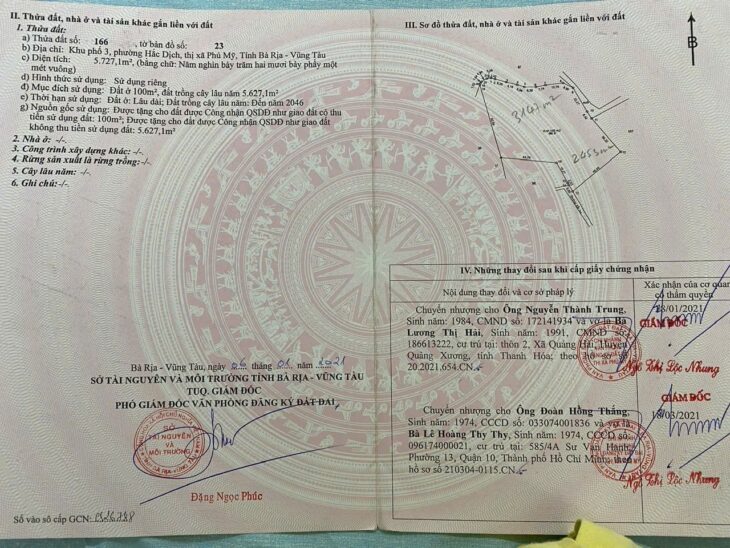 II. Thửa đất, nhà ở và tài sản khác gắn liền với đất
1. Thửa đất:
a) Thửa đất số: 166 , tờ bản đồ số: 23
b) Địa chỉ: Khu phố 3, phường Hắc Dịch, thị xã Phú Mỹ, Tỉnh Bà Rịa - Vũng Tàu
c) Diện tích: 5.727,1m², (bằng chữ: Năm nghìn bảy trăm hai mươi bảy phẩy một
mét vuông)
d) Hình thức sử dụng: Sử dụng riêng
đ) Mục đích sử dụng: Đất ở 100m², đất trồng cây lâu năm 5.627,1m²
e) Thời hạn sử dụng: Đất ở: Lâu dài; Đất trồng cây lâu năm: Đến năm 2046
g) Nguồn gốc sử dụng: Được tặng cho đất được Công nhận QSDĐ như giao đất có thu
tiền sử dụng đất: 100m²; Được tặng cho đất được Công nhận QSDĐ như giao đất
không thu tiền sử dụng đất: 5.627,1m²
2. Nhà ở: -/-
3. Công trình xây dựng khác: -/-
4. Rừng sản xuất là rừng trồng: -/-
5. Cây lâu năm: -/-
6. Ghi chú: -/-
Bà Rịa - Vũng Tàu, ngày 06 tháng 01 năm 2021
SỞ TÀI NGUYÊN VÀ MÔI TRƯỜNG TỈNH BÀ RỊA - VŨNG TÀU
TUQ. GIÁM ĐỐC
PHÓ GIÁM ĐỐC VĂN PHÒNG ĐĂNG KÝ ĐẤT ĐAI
SỞ
TÀI NGUYÊN
VÀ
MÔI TRƯỜNG
Đặng Ngọc Phúc
Số vào sổ cấp GCN:
III. Sơ đồ thửa đất, nhà ở và tài sản khác gắn liền với đất
B
3147 m²
2453 m²
IV. Những thay đổi sau khi cấp giấy chứng nhận
Nội dung thay đổi và cơ sở pháp lý
Xác nhận của cơ quan
có thẩm quyền
Chuyển nhượng cho Ông Nguyễn Thành Trung,
Sinh năm: 1984, CMND số: 172141934 và vợ là Bà
Lương Thị Hải, Sinh năm: 1991, CMND số:
186613222, cư trú tại: thôn 2, Xã Quảng Hải, Huyện
Quảng Xương, tỉnh Thanh Hóa; theo hồ sơ số
20.2021.654.CN
28/01/2021
GIÁM ĐỐC
Ngô Thị Lộc Nhung
Chuyển nhượng cho Ông Đoàn Hồng Thắng,
Sinh năm: 1974, CCCD số: 033074001836 và vợ là
Bà Lê Hoàng Thy Thy, Sinh năm: 1974, CCCD số:
096174000021, cư trú tại: 585/4A Sư Vạn Hạnh
Phường 13, Quận 10, Thành phố Hồ Chí Minh; theo
hồ sơ số 210304-0115.CN
GIÁM ĐỐC
18/03/2021
Ngô Thị Lộc Nhung